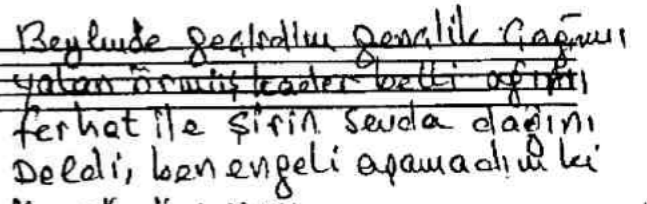 Beyhude geçirdim gençlik çağımı
yalan örmüş kader belli ağımı
ferhat ile şirin sevda dağını
Deldi, ben engeli aşamadım ki